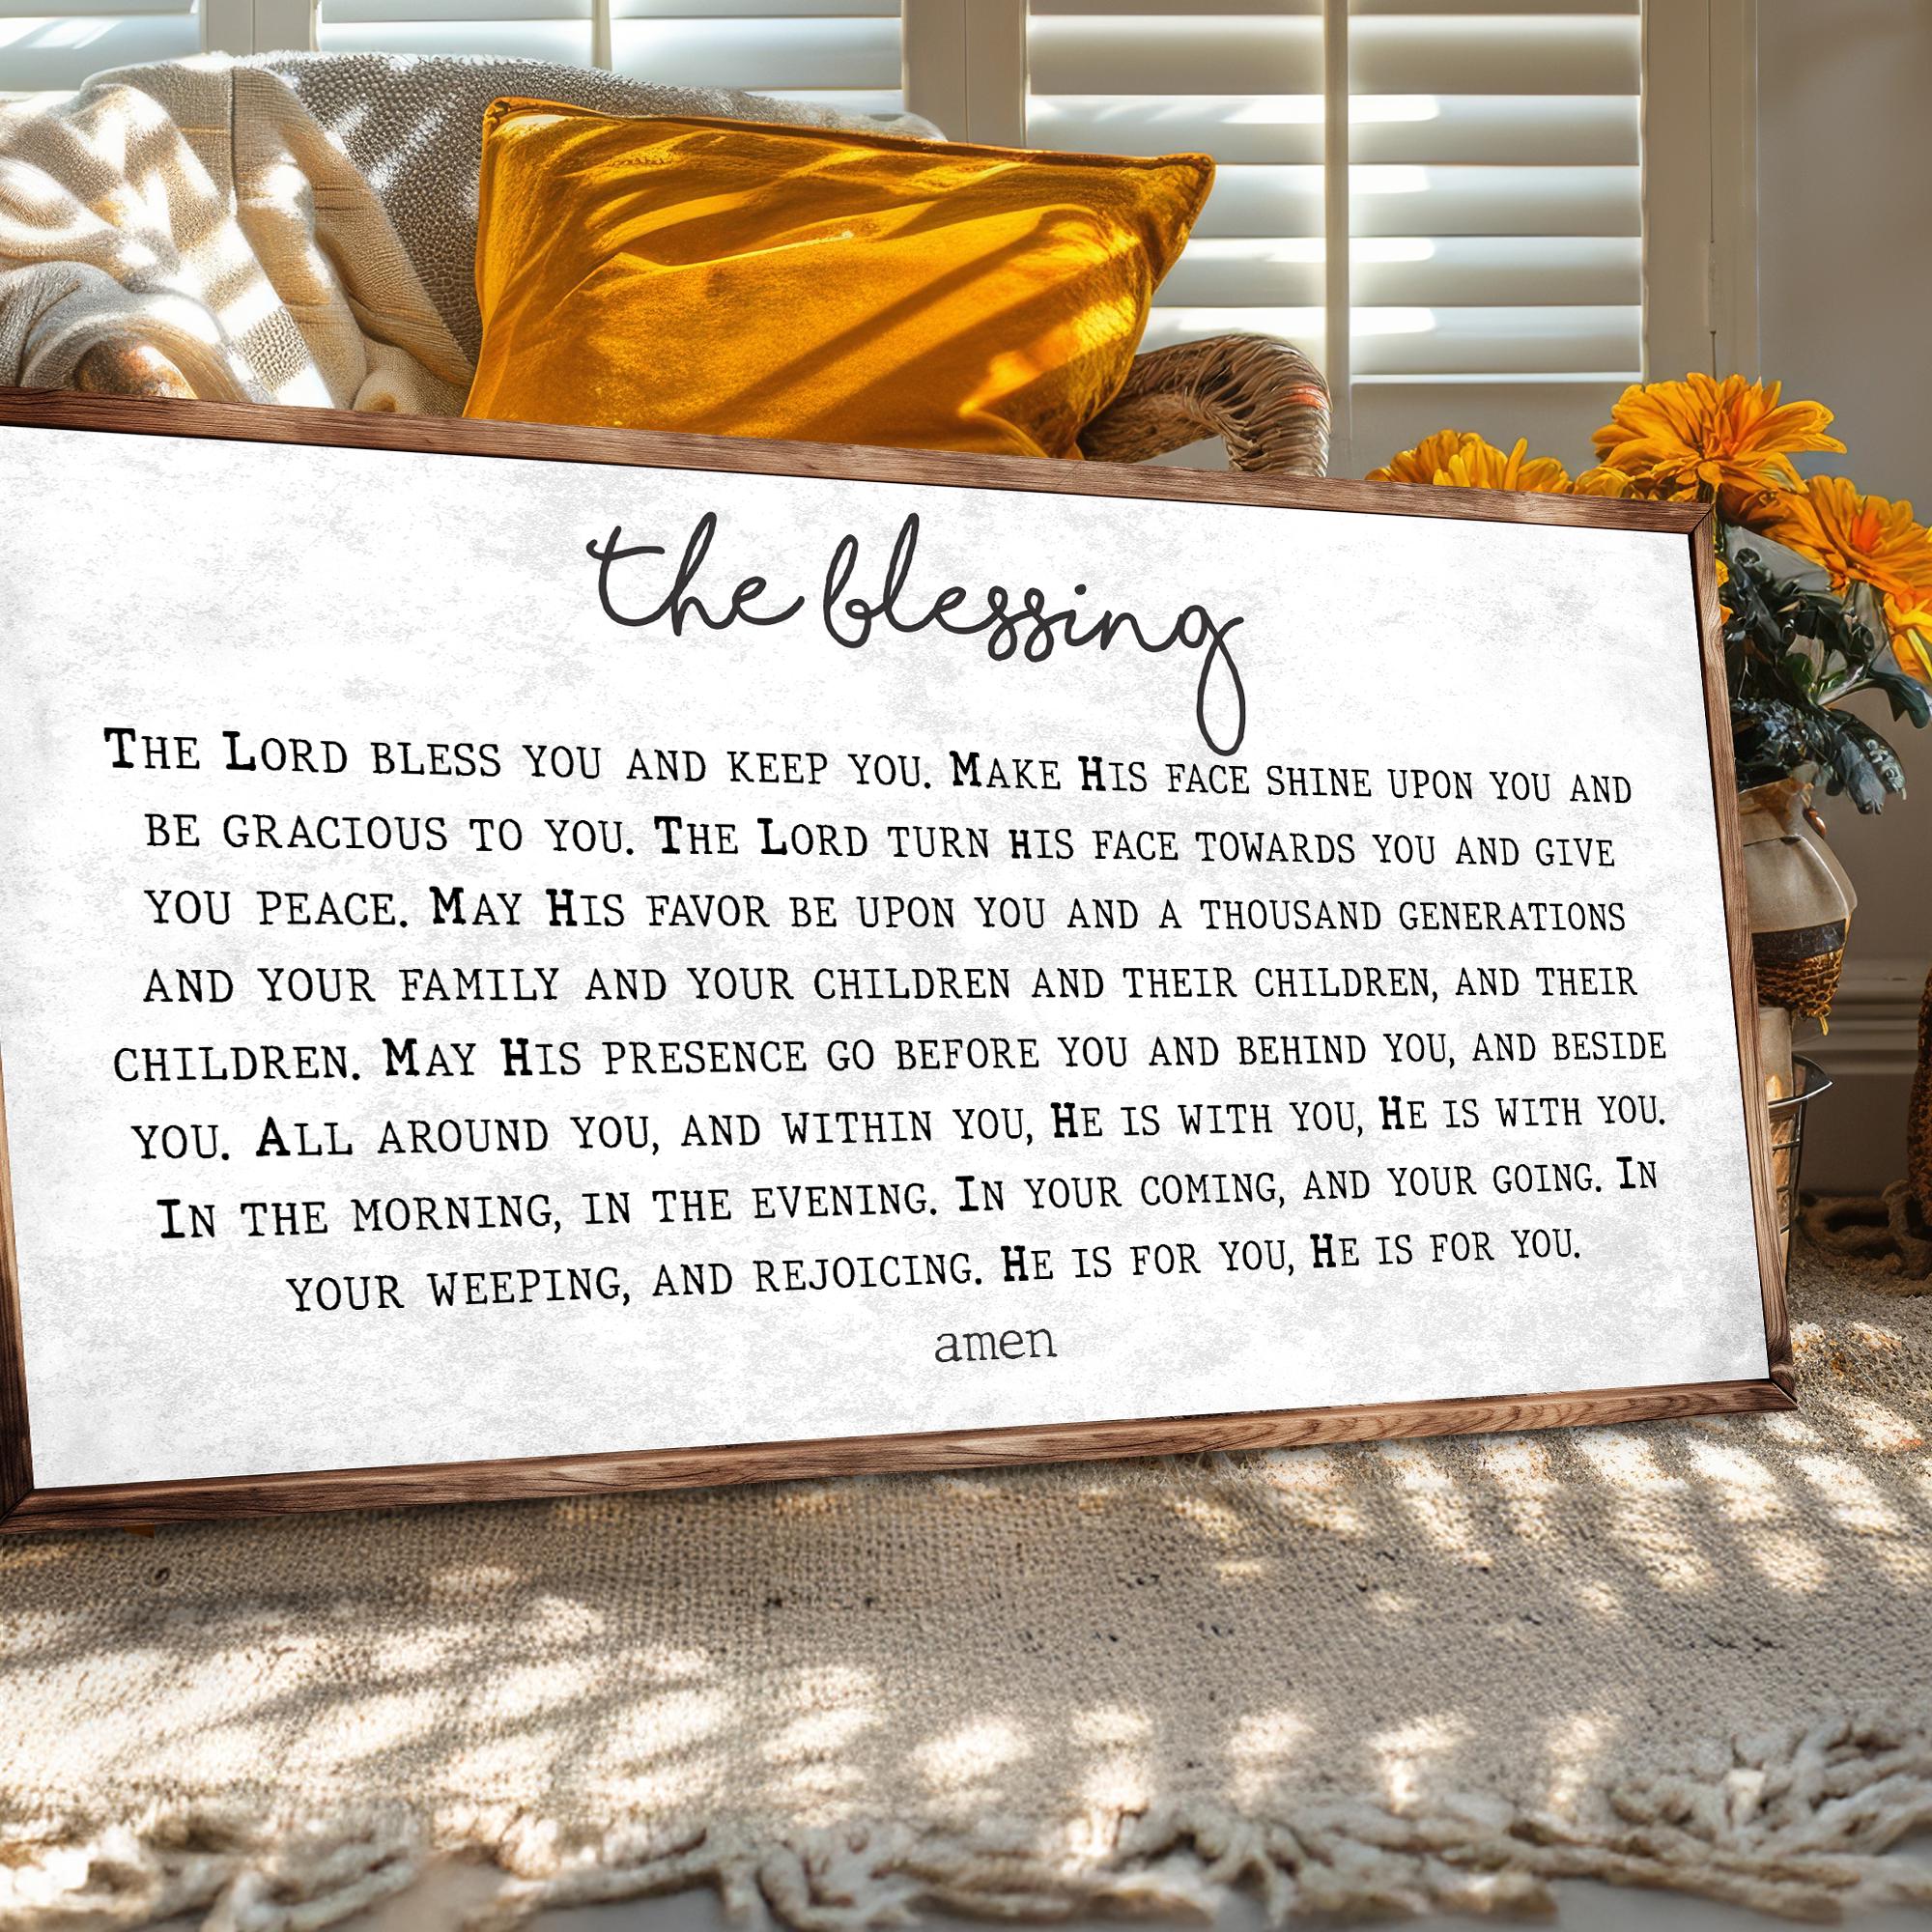 the blessing
The Lord bless you and keep you. Make His face shine upon you and
be gracious to you. The Lord turn his face towards you and give
you peace. May His favor be upon you and a thousand generations
and your family and your children and their children, and their
children. May His presence go before you and behind you, and beside
you. All around you, and within you, He is with you, He is with you.
In the morning, in the evening. In your coming, and your going. In
your weeping, and rejoicing. He is for you, He is for you.
amen